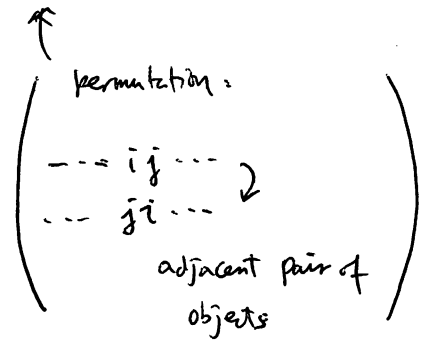 permutation :
--- ij ---
--- ji ---
adjacent pair of
objects